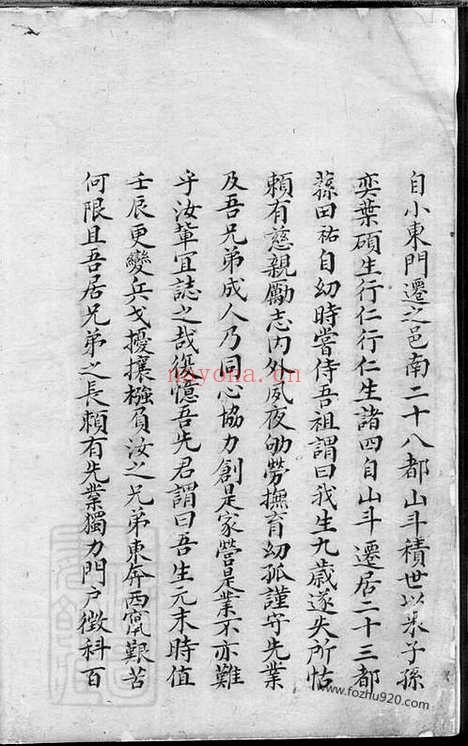 自小東門遷之邑南二十八都山斗積世以來子孫
奕葉碩生行仁行仁生諸四自山斗遷居二十三都
蓀田祐自幼時嘗侍吾祖謂曰我生九歲遂失所怙
賴有慈親勵志內外夙夜劬勞撫育幼孤謹守先業
及吾兄弟成人乃同心協力創是家營是業不亦難
乎汝輩宜誌之哉復憶吾先君謂曰吾生元末時值
壬辰更變兵戈擾攘襁負汝之兄弟東奔西竄艱苦
何限且吾居兄弟之長賴有先業獨力門户徵科百
nayona.cn
www.fozhu920.com